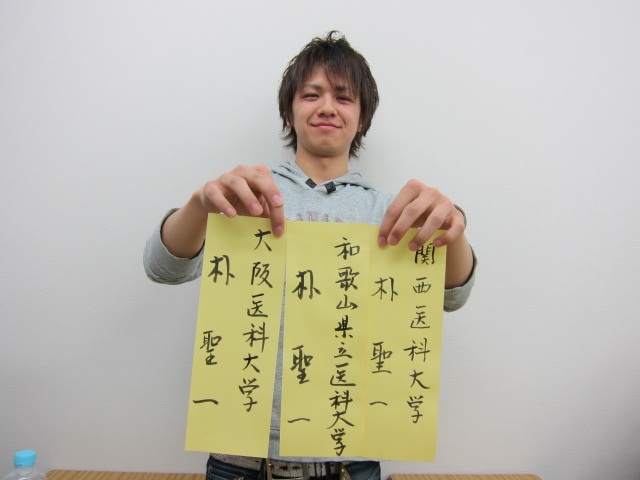 関西医科大学
朴聖一
和歌山県立医科大学
朴聖一
大阪医科大学
朴聖一